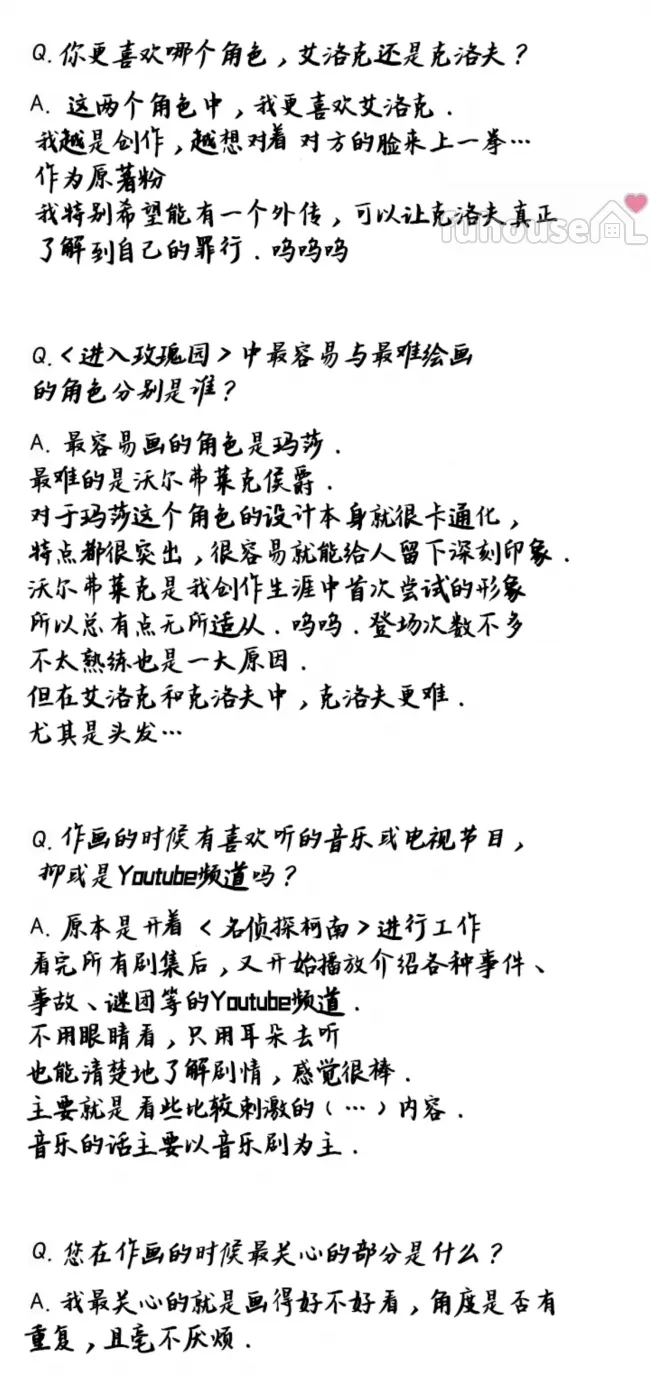 Q. 你更喜欢哪个角色，艾洛克还是克洛夫？
A. 这两个角色中，我更喜欢艾洛克．
我越是创作，越想对着对方的脸来上一拳…
作为原著粉
我特别希望能有一个外传，可以让克洛夫真正
了解到自己的罪行．呜呜呜
Q.〈进入玫瑰园〉中最容易与最难绘画
的角色分别是谁？
A. 最容易画的角色是玛莎．
最难的是沃尔弗莱克侯爵．
对于玛莎这个角色的设计本身就很卡通化，
特点都很突出，很容易就能给人留下深刻印象．
沃尔弗莱克是我创作生涯中首次尝试的形象
所以总有点无所适从．呜呜．登场次数不多
不太熟练也是一大原因．
但在艾洛克和克洛夫中，克洛夫更难．
尤其是头发…
Q. 作画的时候有喜欢听的音乐或电视节目，
抑或是Youtube频道吗？
A. 原本是开着〈名侦探柯南〉进行工作
看完所有剧集后，又开始播放介绍各种事件、
事故、谜团等的Youtube频道．
不用眼睛看，只用耳朵去听
也能清楚地了解剧情，感觉很棒．
主要就是看些比较刺激的（…）内容．
音乐的话主要以音乐剧为主．
Q. 您在作画的时候最关心的部分是什么？
A. 我最关心的就是画得好不好看，角度是否有
重复，且毫不厌烦．